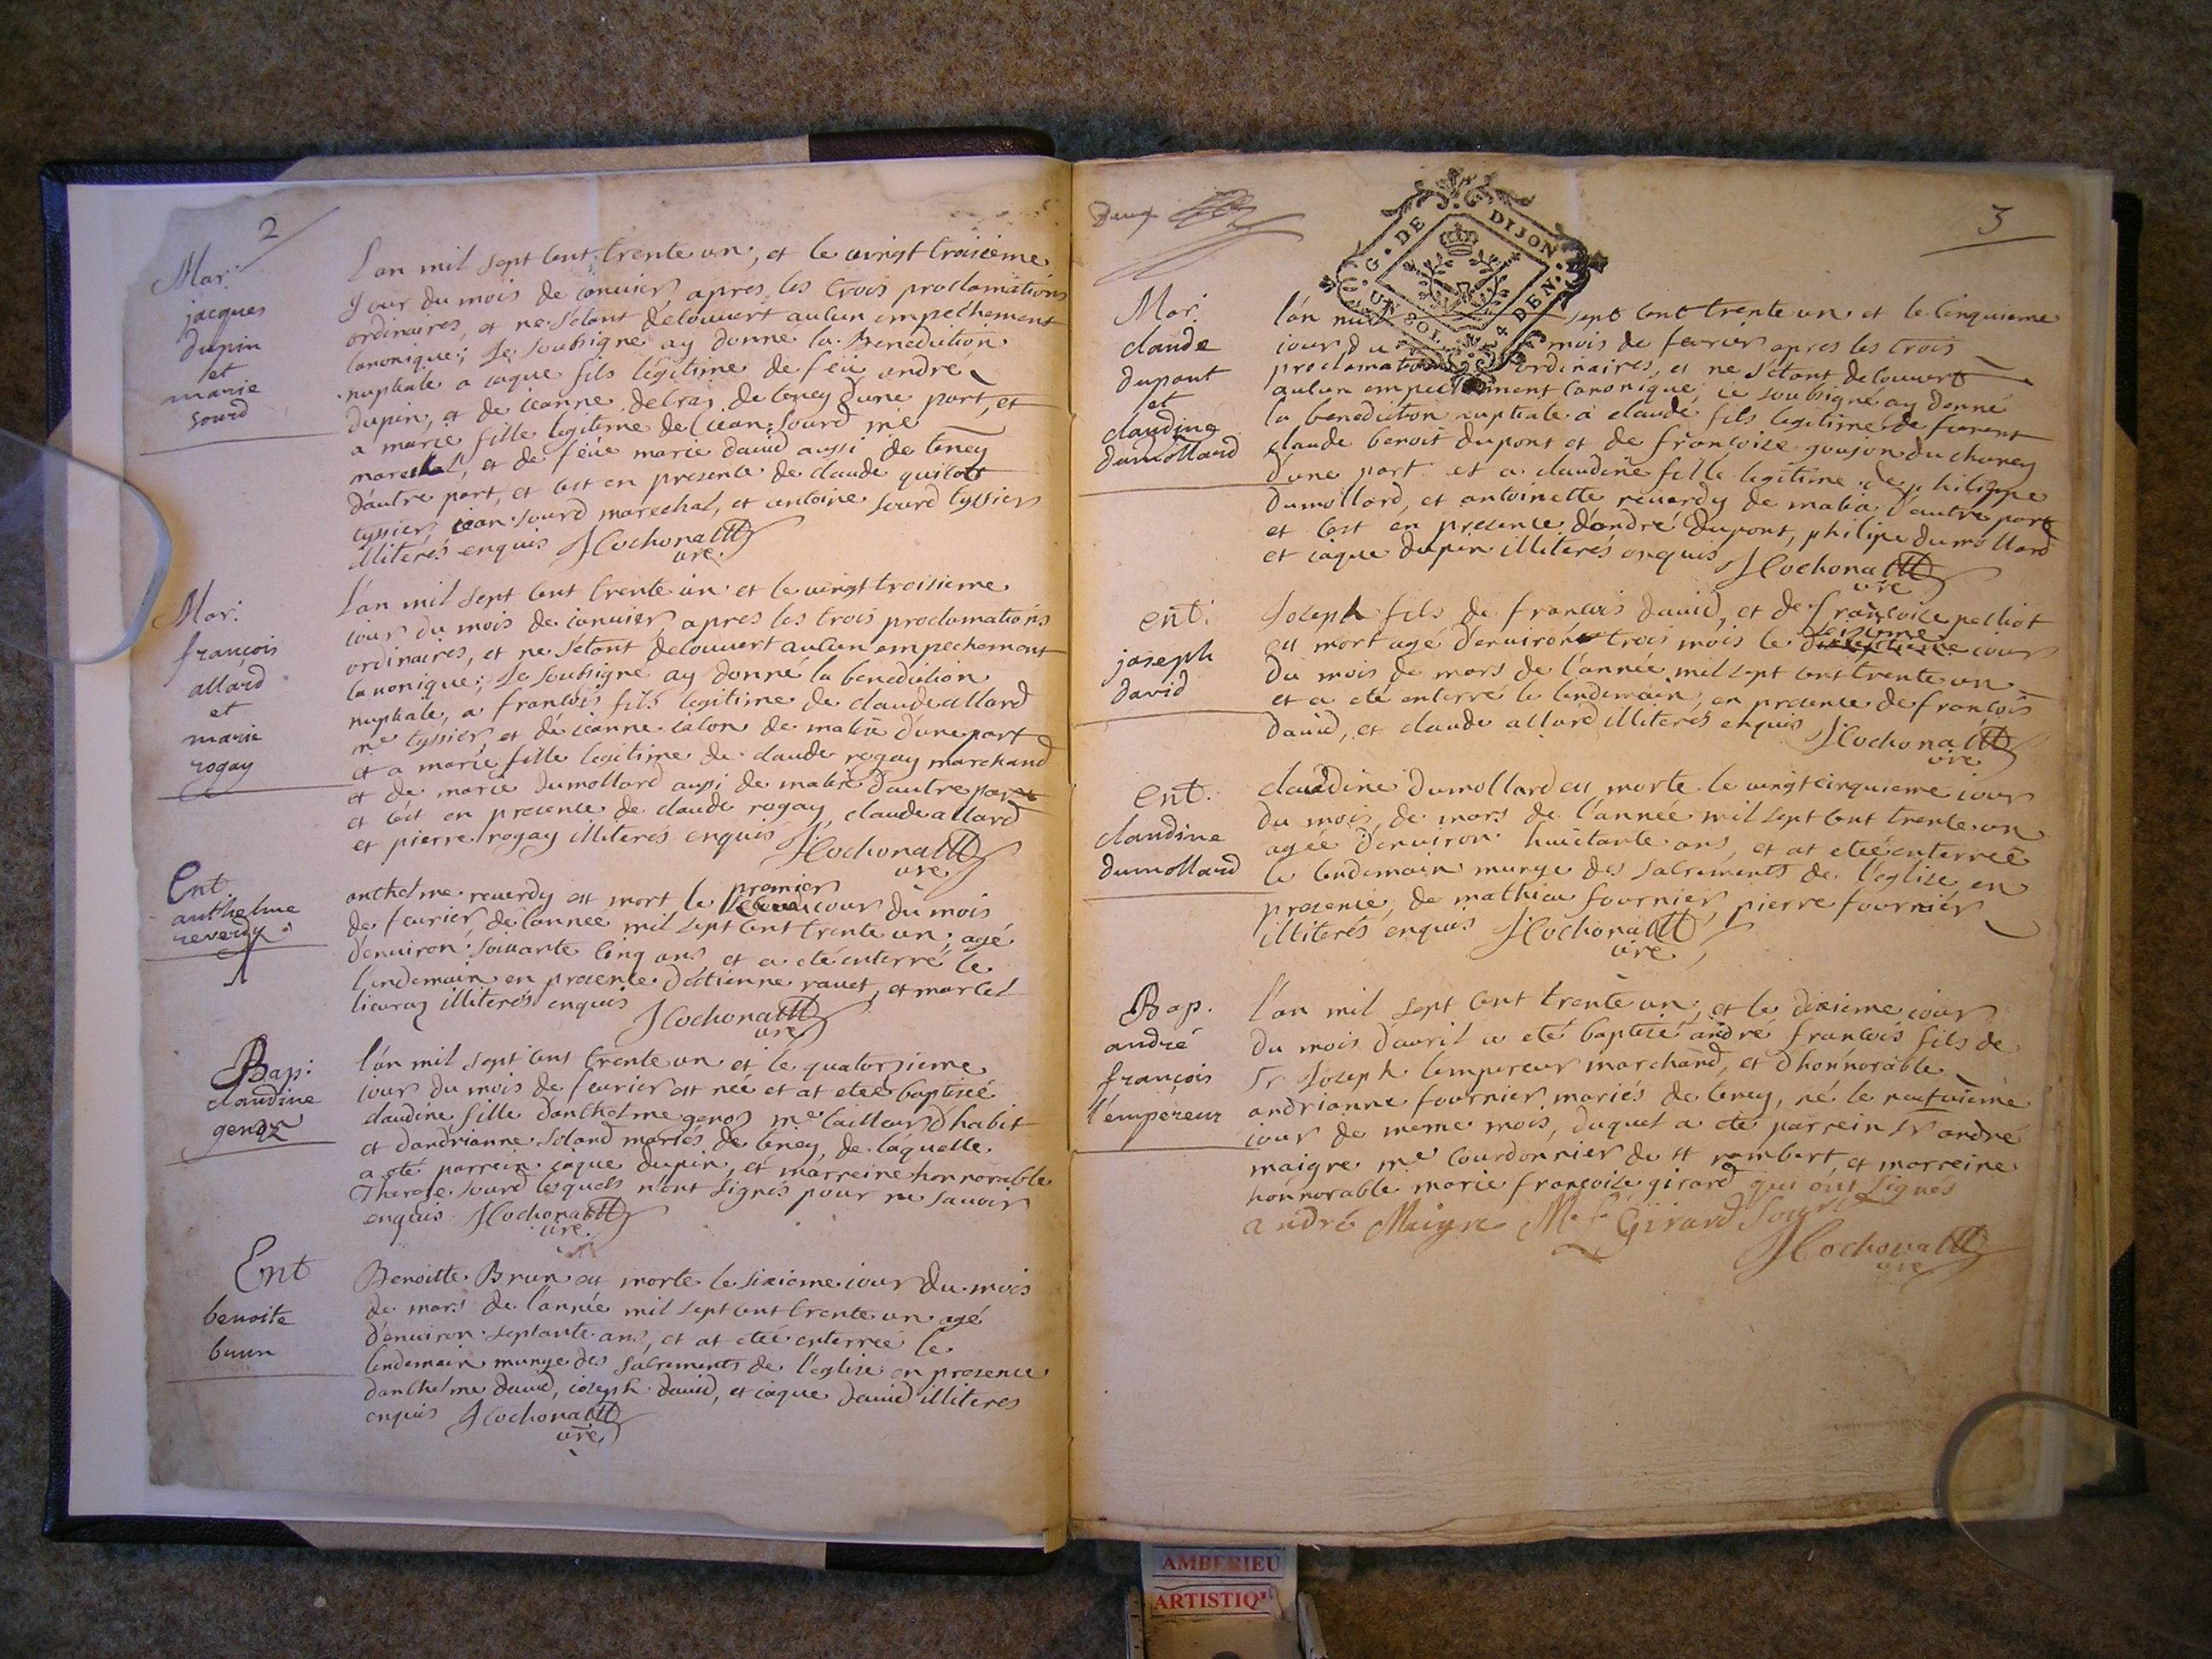 2
Mar:
jacques
dupin
et
marie
sourd
L'an mil sept cent trente un, et le vingt troisieme
jour du mois de ianvier, apres les trois proclamations
ordinaires, et ne s'etant decouvert aucun empechement
canonique; Je soubsigné ay donné la Benediction
nuptiale a iaque fils legitime de feu andré
dupin, et de ieanne delras de teney d'une part, et
a marie fille legitime de iean sourd me
marechal, et de feüe marie david aussi de teney
d'autre part, et c'est en presence de claude
tyssier, iean sourd marechal, et antoine sourd tyssier
illiterés enquis J Cochonat
vre
Mar:
françois
allard
et
marie
rogay
L'an mil sept cent trente un et le vingt troisieme
iour du mois de ianvier, apres les trois proclamations
ordinaires, et ne s'etant decouvert aucun empechement
canonique; Je soubsigné ay donné la benediction
nuptiale, a francois fils legitime de claude allard
me tyssier, et de ieanne de malix d'une part
et a marie fille legitime de claude rogay marchand
et de marie dumollard aussi de malix d'autre part
et c'est en presence de claude rogay, claude allard
et pierre rogay illiterés enquis J Cochonat
vre
Ent
anthelme
reverdy
anthelme reverdy est mort le premier iour du mois
de fevrier de l'annee mil sept cent trente un, agé
d'environ soixante cinq ans, et a eté enterré le
lendemain en presence d'etienne ravet, et marcel
illiterés enquis J Cochonat
vre
Bap:
claudine
genoz
l'an mil sept cent trente un et le quatorzieme
iour du mois de fevrier est née et at eteé baptiseé
claudine fille d'anthelme genos me tailleur d'habit
et d'andrianne soland mariés de teney, de laquelle
a eté parrein iaque dupin, et marreine honnorable
Therese sourd lesquels n'ont signés pour ne savoir
enquis J Cochonat
vre
Ent
benoite
brun
Benoitte Brun est morte le sixieme iour du mois
de mars de l'année mil sept cent trente un agé
d'environ septante ans, et at eteé enterreé le
lendemain munye des sacrements de l'eglise en presence
d'anthelme david, ioseph david, et iaque david illiteres
enquis J Cochonat
vre
deux
3
G. DE DIJON
UN SOL 4 DEN.
Mar:
claude
dupont
et
claudine
dumollard
l'an mil sept cent trente un et le cinquieme
iour du mois de fevrier apres les trois
proclamations ordinaires, et ne s'etant decouvert
aucun empechement canonique; ie soubsigné ay donné
la benediction nuptiale a claude fils legitime de
claude benoit dupont et de françoise goujon du
d'une part et a claudine fille legitime de philippe
dumollard, et antoinette reverdy de malix d'autre part
et c'est en presence d'andré dupont, philipe dumollard
et iaque dupin illiterés enquis J Cochonat
vre
ent:
joseph
david
Joseph fils de francois david, et de françoise pelliot
est mort agé d'environ trois mois le seisieme iour
du mois de mars de l'année mil sept cent trente un
et a eté enterré le lendemain, en presence de françois
david, et claude allard illiteres enquis J Cochonat
vre
ent.
claudine
dumollard
claudine dumollard est morte le vingt cinquieme iour
du mois de mars de l'année mil sept cent trente un
ageé d'environ huictante ans, et at eteé enterreé
le lendemain munye des sacrements de l'eglise, en
presence, de mathieu fournier, pierre fournier
illiterés enquis J Cochonat
vre
Bap.
andré
françois
l'empereur
l'an mil sept cent trente un, et le dixieme iour
du mois d'avril a eté baptisé andré francois fils de
Sr Joseph lempereur marchand, et d'honnorable
andrianne fournier mariés de teney, né le
iour de meme mois, duquel a eté parrein Sr andré
maigre me courdonnier de st rambert, et marreine
honnorable marie françoise girard qui ont signés
andré Maigre M f Girard
J Cochonat
vre
AMBERIEU
ARTISTIQ